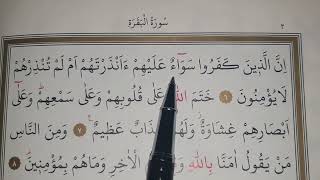 سُورَةُ الْبَقَرَةِ ٢
اِنَّ الَّذ۪ينَ كَفَرُوا سَوَٓاءٌ عَلَيْهِمْ ءَاَنْذَرْتَهُمْ اَمْ لَمْ تُنْذِرْهُمْ
لَا يُؤْمِنُونَ ٦ خَتَمَ اللّٰهُ عَلٰى قُلُوبِهِمْ وَعَلٰى سَمْعِهِمْ وَعَلٰٓى
اَبْصَارِهِمْ غِشَاوَةٌ وَلَهُمْ عَذَابٌ عَظ۪يمٌ ٧ وَمِنَ النَّاسِ
مَنْ يَقُولُ اٰمَنَّا بِاللّٰهِ الْاٰخِرِ وَمَا هُمْ بِمُؤْمِن۪ينَ ٨